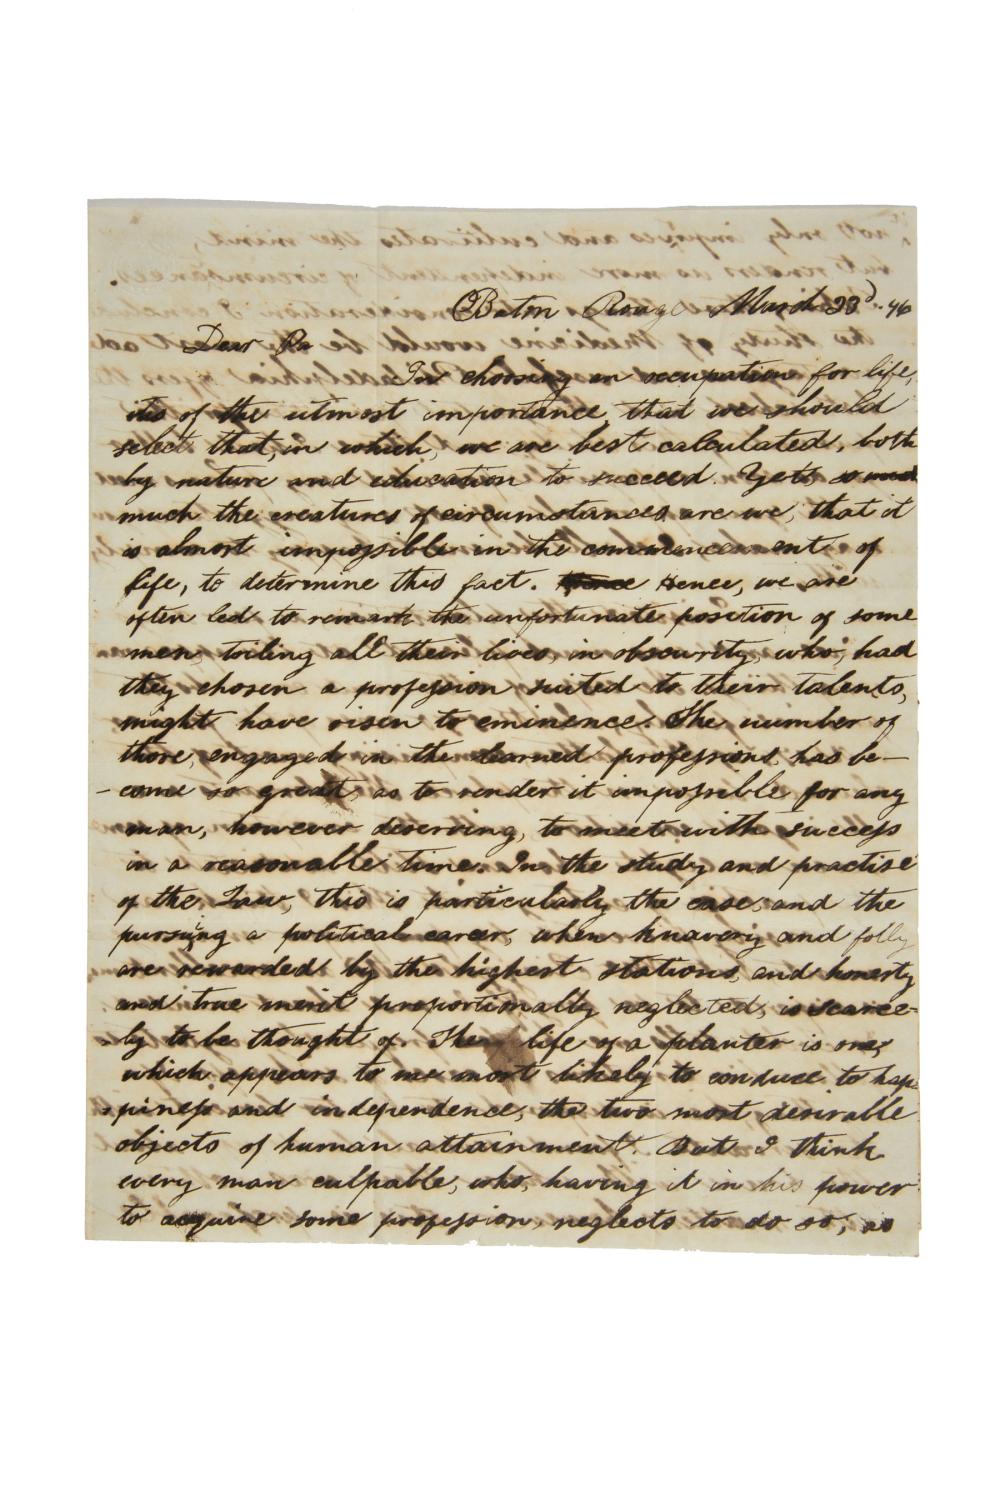 Baton Rouge March 23d. 46
Dear Pa
In choosing an occupation for life,
it is of the utmost importance, that we should
select that, in which, we are best calculated, both
by nature and education to succeed. Yet, so
much the creatures of circumstances, are we, that it
is almost impossible in the commencement of
life, to determine this fact. Hence, we are
often led to remark the unfortunate position of some
men, toiling all their lives, in obscurity, who, had
they chosen a profession suited to their talents,
might have risen to eminence. The number of
those, engaged in the learned professions, has be-
-come so great, as to render it impossible for any
man, however deserving, to meet with success
in a reasonable time. In the study and practise
of the Law, this is particularly the case, and the
pursuing a political career, when knavery and folly
are rewarded by the highest stations, and honesty
and true merit proportionally neglected, is scarce-
-ly to be thought of. The life of a planter is one,
which appears to me most likely to conduce to hap-
-piness and independence, the two most desirable
objects of human attainment. But I think
every man culpable, who, having it in his power
to acquire some profession, neglects to do so, as